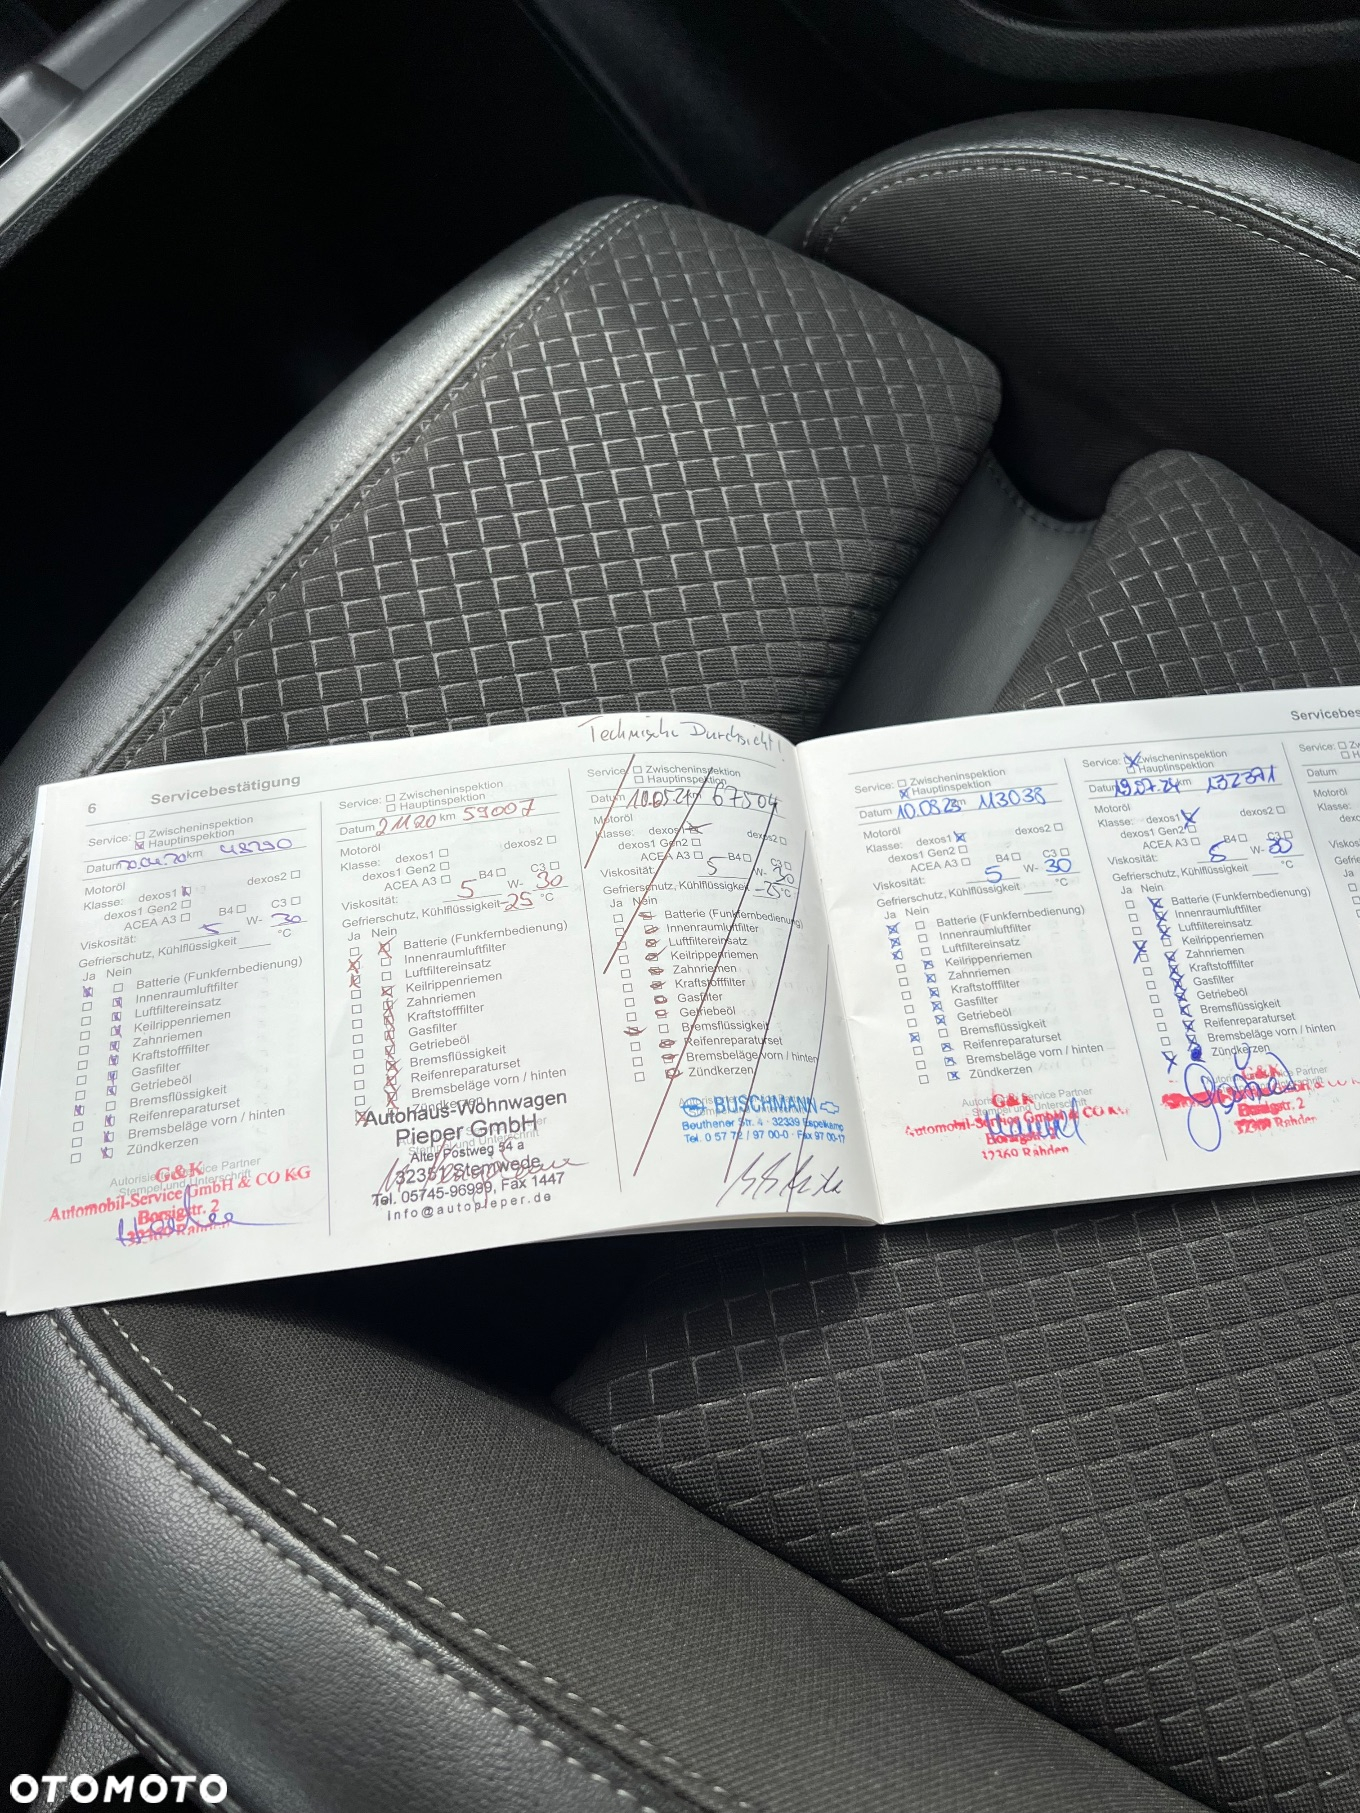 6 Servicebestätigung
Service: Zwischeninspektion
Hauptinspektion
Datum 20.04.20 km 48290
Motoröl
Klasse: dexos1 dexos2
dexos1 Gen2
ACEA A3 B4 C3
Viskosität: 5 W- 30
Gefrierschutz, Kühlflüssigkeit °C
Ja Nein
Batterie (Funkfernbedienung)
Innenraumluftfilter
Luftfiltereinsatz
Keilrippenriemen
Zahnriemen
Kraftstofffilter
Gasfilter
Getriebeöl
Bremsflüssigkeit
Reifenreparaturset
Bremsbeläge vorn / hinten
Zündkerzen
Autorisierter Service Partner
Stempel und Unterschrift
G&K
Automobil-Service GmbH & CO KG
Borsigstr. 2
32369 Rahden
Service: Zwischeninspektion
Hauptinspektion
Datum 21120 km 59007
Motoröl
Klasse: dexos1 dexos2
dexos1 Gen2
ACEA A3 B4 C3
Viskosität: 5 W- 30
Gefrierschutz, Kühlflüssigkeit -25 °C
Ja Nein
Batterie (Funkfernbedienung)
Innenraumluftfilter
Luftfiltereinsatz
Keilrippenriemen
Zahnriemen
Kraftstofffilter
Gasfilter
Getriebeöl
Bremsflüssigkeit
Reifenreparaturset
Bremsbeläge vorn / hinten
Zündkerzen
Autohaus-Wohnwagen
Pieper GmbH
Alter Postweg 54 a
32351 Stemwede
Tel. 05745-96999, Fax 1447
info@autopieper.de
Technische Durchsicht!
Service: Zwischeninspektion
Hauptinspektion
Datum 10.05.21 km 67504
Motoröl
Klasse: dexos1 dexos2
dexos1 Gen2
ACEA A3 B4 C3
Viskosität: 5 W- 30
Gefrierschutz, Kühlflüssigkeit -25 °C
Ja Nein
Batterie (Funkfernbedienung)
Innenraumluftfilter
Luftfiltereinsatz
Keilrippenriemen
Zahnriemen
Kraftstofffilter
Gasfilter
Getriebeöl
Bremsflüssigkeit
Reifenreparaturset
Bremsbeläge vorn / hinten
Zündkerzen
BUSCHMANN
Beuthener Str. 4 · 32339 Espelkamp
Tel. 0 57 72 / 97 00-0 · Fax 97 00-17
Service: Zwischeninspektion
Hauptinspektion
Datum 10.08.23 km 113038
Motoröl
Klasse: dexos1 dexos2
dexos1 Gen2
ACEA A3 B4 C3
Viskosität: 5 W- 30
Gefrierschutz, Kühlflüssigkeit °C
Ja Nein
Batterie (Funkfernbedienung)
Innenraumluftfilter
Luftfiltereinsatz
Keilrippenriemen
Zahnriemen
Kraftstofffilter
Gasfilter
Getriebeöl
Bremsflüssigkeit
Reifenreparaturset
Bremsbeläge vorn / hinten
Zündkerzen
Autorisierter Service Partner
Stempel und Unterschrift
G&K
Automobil-Service GmbH & CO KG
Borsigstr. 2
32369 Rahden
Servicebes
Service: Zwischeninspektion
Hauptinspektion
Datum 19.07.24 km 132371
Motoröl
Klasse: dexos1 dexos2
dexos1 Gen2
ACEA A3 B4 C3
Viskosität: 5 W- 30
Gefrierschutz, Kühlflüssigkeit °C
Ja Nein
Batterie (Funkfernbedienung)
Innenraumluftfilter
Luftfiltereinsatz
Keilrippenriemen
Zahnriemen
Kraftstofffilter
Gasfilter
Getriebeöl
Bremsflüssigkeit
Reifenreparaturset
Bremsbeläge vorn / hinten
Zündkerzen
G&K
Borsigstr. 2
Rahden
Service: Zw
Ha
Datum
Motoröl
Klasse:
Viskos
Gefr
Ja
OTOMOTO